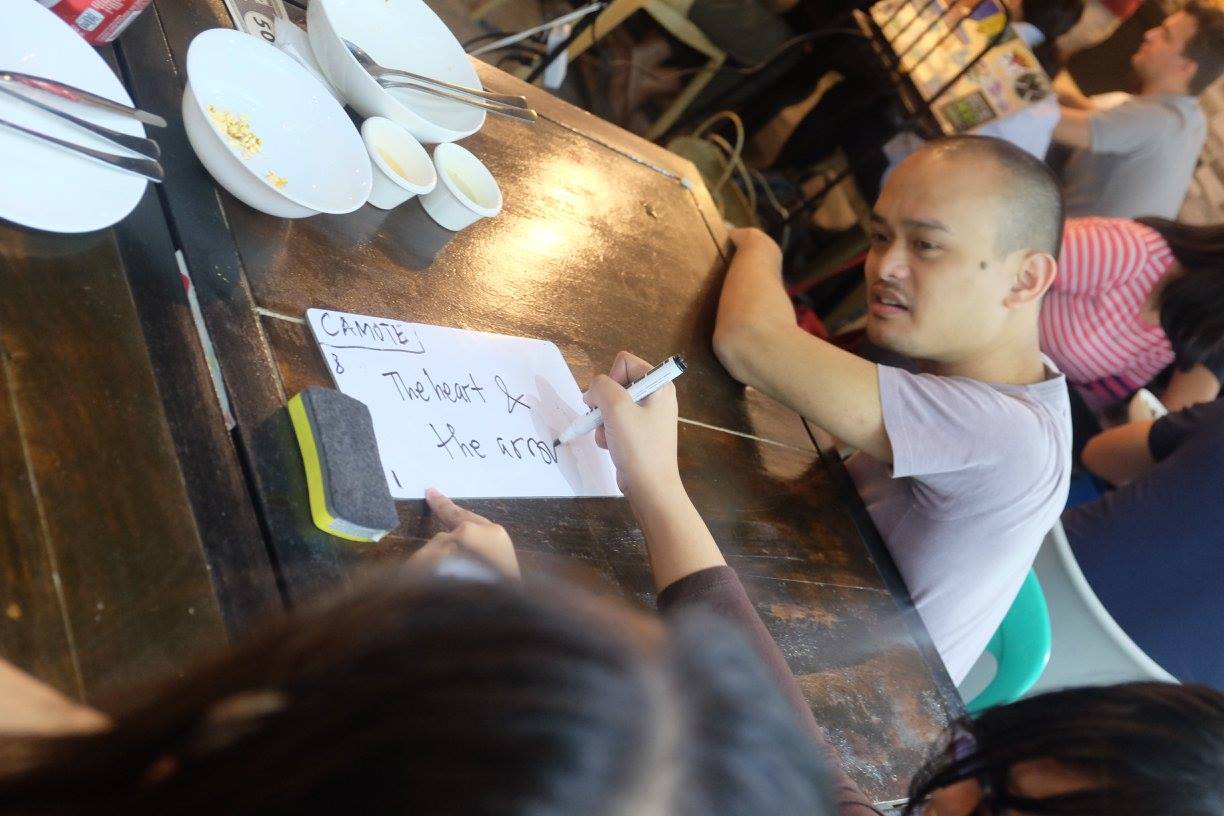 CAMOTE
8
The heart &
the arrow
1
50